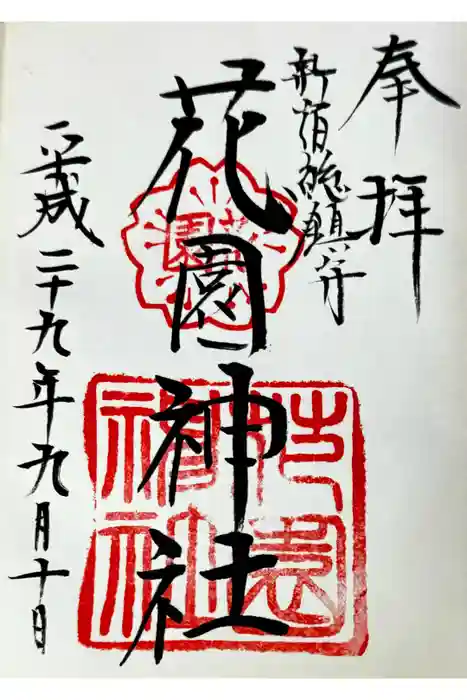 奉拝
新宿総鎮守
花園神社
平成二十九年九月十日
花園
花園神社